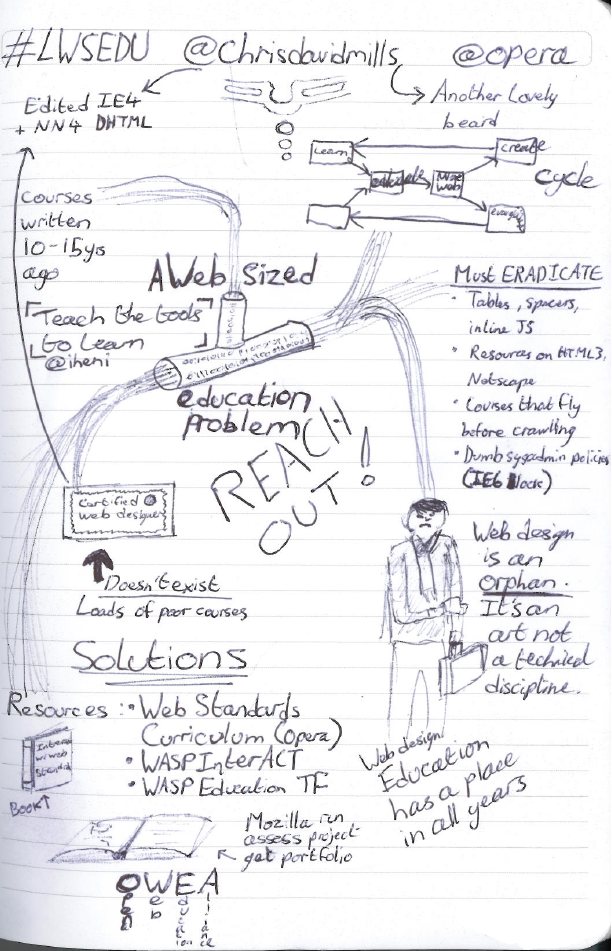 #LWSEDU @chrisdavidmills @opera
Edited IE4
+ NN4 DHTML
Another Lovely
beard
Learn
create
educate
evangelise
cycle
Courses
written
10-15ys
ago
A Web Sized
education
problem
"Teach the tools
to learn"
@iheni
Must ERADICATE
• Tables, spacers,
inline JS
• Resources on HTML3,
Netscape
• Courses that fly
before crawling
• Dumb sysadmin policies
(IE6 lock)
REACH
OUT!
Certified
web designer
Doesn't exist
Loads of poor courses
Web design
is an
orphan.
It's an
art not
a technical
discipline.
Solutions
Resources: • Web Standards
Curriculum (Opera)
• WASP InterACT
• WASP Education TF
Book↑
Web design
Education
has a place
in all years
Mozilla run
assess project-
get portfolio
OWEA
Open
Web
Education
Alliance